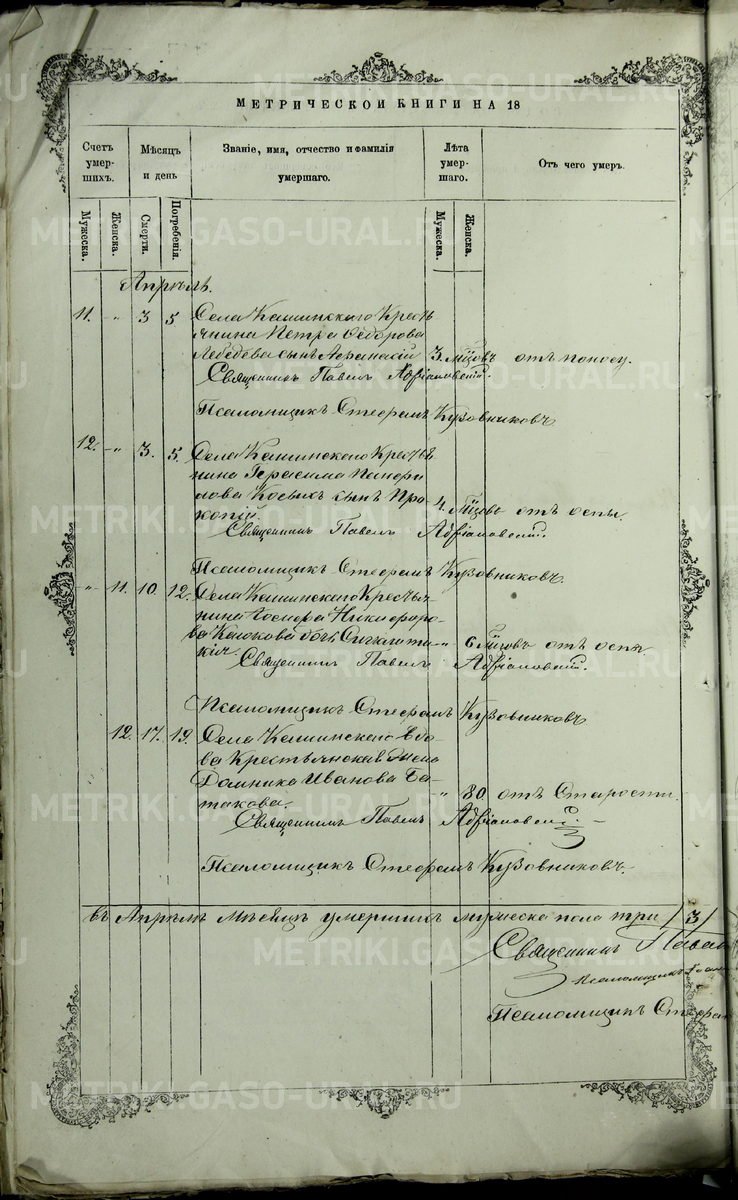 МЕТРИЧЕСКОЙ КНИГИ НА 18
Счетъ умер-шихъ.
Мѣсяцъ и день
Званіе, имя, отчество и фамилія умершаго.
Лѣта умер-шаго.
Отъ чего умеръ.
Мужеска.
Женска.
Смерти.
Погребенія.
Мужеска.
Женска.
Апрѣль.
11. „ 3 5 Села Кашинскаго Кресть
янина Петра Ѳедорова
Лебедева сынъ Аѳанасій 3. мѣсцовъ отъ поносу.
Священникъ Павелъ Адріановскій.
Псаломщикъ Стефанъ Кузовниковъ
12. „ 3. 5. Села Кашинскаго Крестья
нина Герасима Панфи
лова Косыхъ сынъ Про
копій. 4. мѣсцовъ отъ оспы.
Священникъ Павелъ Адріановскій.
Псаломщикъ Стефанъ Кузовниковъ.
„ 11. 10. 12. Села Кашинскаго Крестья
нина Іосифа Никифоро
ва дочь „ 6 мѣсцовъ отъ оспы
Священникъ Павелъ Адріановскій.
Псаломщикъ Стефанъ Кузовниковъ
12. 17. 19. Села Кашинскаго вдо
ва Крестьянская жена
Домника Иванова Ба
такова. „ 80 отъ Старости.
Священникъ Павелъ Адріановскій.
Псаломщикъ Стефанъ Кузовниковъ.
въ Апрѣлѣ мѣсяцѣ умершихъ мужеска пола три /3/
Священникъ Павелъ
Псаломщикъ
Псаломщикъ Стефан
METRIKI.GASO-URAL.RU